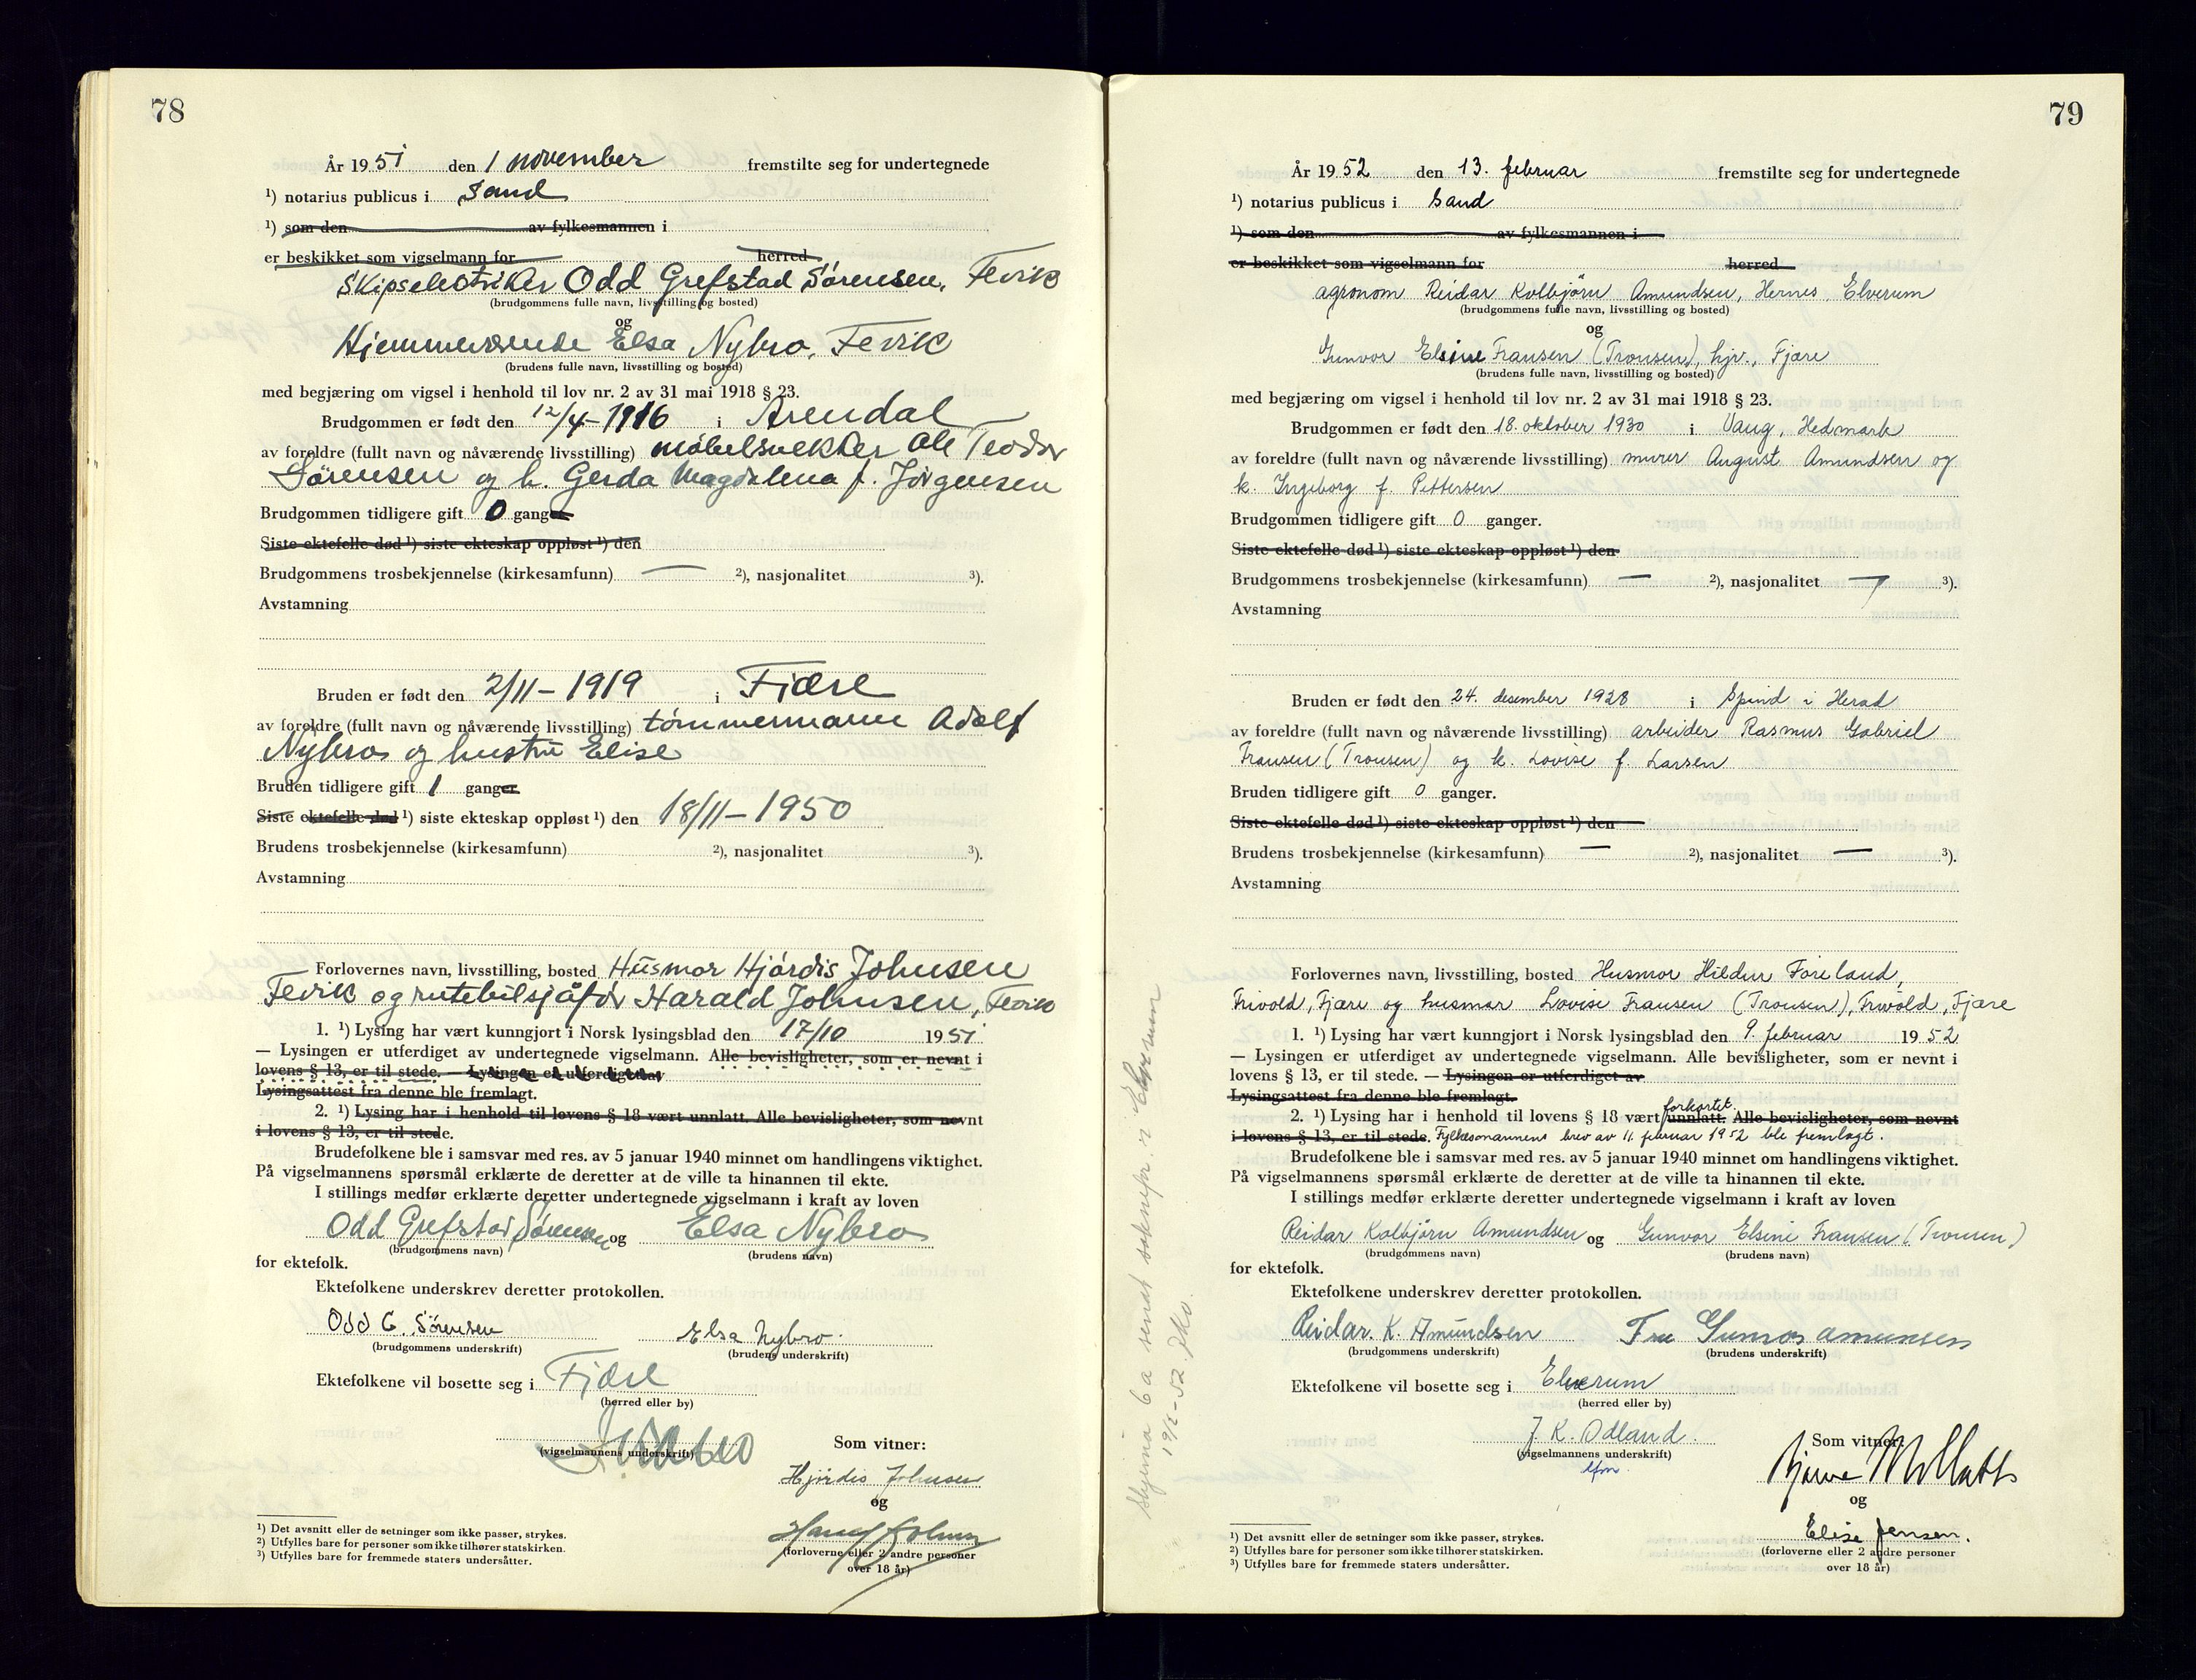 78
År 1951 den 1 november fremstilte seg for undertegnede
¹) notarius publicus i Sand
¹) som den av fylkesmannen i
er beskikket som vigselmann for herred
Skipselektriker Odd Grefstad Sørensen, Fevik
(brudgommens fulle navn, livsstilling og bosted)
og
Hjemmeværende Elsa Nybro, Fevik
(brudens fulle navn, livsstilling og bosted)
med begjæring om vigsel i henhold til lov nr. 2 av 31 mai 1918 § 23.
Brudgommen er født den 12/4-1916 i Arendal
av foreldre (fullt navn og nåværende livsstilling) møbelsnekker Ole Teodor
Sørensen og h. Gerda Magdalena f. Jørgensen
Brudgommen tidligere gift 0 ganger
Siste ektefelle død ¹) siste ekteskap oppløst ¹) den
Brudgommens trosbekjennelse (kirkesamfunn) — ²), nasjonalitet ³).
Avstamning
Bruden er født den 2/11-1919 i Fjære
av foreldre (fullt navn og nåværende livsstilling) tømmermann Adolf
Nybro og hustru Elise
Bruden tidligere gift 1 ganger
Siste ektefelle død ¹) siste ekteskap oppløst ¹) den 18/11-1950
Brudens trosbekjennelse (kirkesamfunn) ²), nasjonalitet ³).
Avstamning
Forlovernes navn, livsstilling, bosted Husmor Hjørdis Johnsen
Fevik og rutebilsjåfør Harald Johnsen, Fevik
1. ¹) Lysing har vært kunngjort i Norsk lysingsblad den 17/10 1951
— Lysingen er utferdiget av undertegnede vigselmann. Alle bevisligheter, som er nevnt i
lovens § 13, er til stede. — Lysingen er utferdiget av
Lysingsattest fra denne ble fremlagt.
2. ¹) Lysing har i henhold til lovens § 18 vært unnlatt. Alle bevisligheter, som nevnt
i lovens § 13, er til stede.
Brudefolkene ble i samsvar med res. av 5 januar 1940 minnet om handlingens viktighet.
På vigselmannens spørsmål erklærte de deretter at de ville ta hinannen til ekte.
I stillings medfør erklærte deretter undertegnede vigselmann i kraft av loven
Odd Grefstad Sørensen og Elsa Nybro
(brudgommens navn) (brudens navn)
for ektefolk.
Ektefolkene underskrev deretter protokollen.
Odd G. Sørensen Elsa Nybro.
(brudgommens underskrift) (brudens underskrift)
Ektefolkene vil bosette seg i Fjære
(herred eller by)
(vigselmannens underskrift)
Som vitner:
Hjørdis Johnsen
og
(forloverne eller 2 andre personer
over 18 år)
¹) Det avsnitt eller de setninger som ikke passer, strykes.
²) Utfylles bare for personer som ikke tilhører statskirken.
³) Utfylles bare for fremmede staters undersåtter.
79
År 1952 den 13. februar fremstilte seg for undertegnede
¹) notarius publicus i Sand
¹) som den av fylkesmannen i
er beskikket som vigselmann for herred
agronom Reidar Kolbjørn Amundsen, Hernes, Elverum
(brudgommens fulle navn, livsstilling og bosted)
og
Gunvor Elsine Fransen (Tronsen), hjv., Fjære
(brudens fulle navn, livsstilling og bosted)
med begjæring om vigsel i henhold til lov nr. 2 av 31 mai 1918 § 23.
Brudgommen er født den 18. oktober 1930 i Vang, Hedmark
av foreldre (fullt navn og nåværende livsstilling) murer August Amundsen og
h. Ingeborg f. Pettersen
Brudgommen tidligere gift 0 ganger.
Siste ektefelle død ¹) siste ekteskap oppløst ¹) den
Brudgommens trosbekjennelse (kirkesamfunn) — ²), nasjonalitet — ³).
Avstamning
Bruden er født den 24. desember 1928 i Spind i Herad
av foreldre (fullt navn og nåværende livsstilling) arbeider Rasmus Gabriel
Fransen (Tronsen) og h. Lovise f. Larsen
Bruden tidligere gift 0 ganger.
Siste ektefelle død ¹) siste ekteskap oppløst ¹) den
Brudens trosbekjennelse (kirkesamfunn) — ²), nasjonalitet — ³).
Avstamning
Forlovernes navn, livsstilling, bosted Husmor Hildur Foreland,
Frivold, Fjære og husmor Lovise Fransen (Tronsen), Frivold, Fjære
1. ¹) Lysing har vært kunngjort i Norsk lysingsblad den 9. februar 1952
— Lysingen er utferdiget av undertegnede vigselmann. Alle bevisligheter, som er nevnt i
lovens § 13, er til stede. — Lysingen er utferdiget av
Lysingsattest fra denne ble fremlagt.
forkortet.
2. ¹) Lysing har i henhold til lovens § 18 vært unnlatt. Alle bevisligheter, som nevnt
i lovens § 13, er til stede. Fylkesmannens brev av 11. februar 1952 ble fremlagt.
Brudefolkene ble i samsvar med res. av 5 januar 1940 minnet om handlingens viktighet.
På vigselmannens spørsmål erklærte de deretter at de ville ta hinannen til ekte.
I stillings medfør erklærte deretter undertegnede vigselmann i kraft av loven
Reidar Kolbjørn Amundsen og Gunvor Elsine Fransen (Tronsen)
(brudgommens navn) (brudens navn)
for ektefolk.
Ektefolkene underskrev deretter protokollen.
Reidar. K. Amundsen Fru Gunvor Amunsen
(brudgommens underskrift) (brudens underskrift)
Ektefolkene vil bosette seg i Elverum
(herred eller by)
J. K. Ødland.
(vigselmannens underskrift)
Som vitner:
og
Elise Jensen.
(forloverne eller 2 andre personer
over 18 år)
¹) Det avsnitt eller de setninger som ikke passer, strykes.
²) Utfylles bare for personer som ikke tilhører statskirken.
³) Utfylles bare for fremmede staters undersåtter.
Skjema 6 a sendt soknepr. i Elverum
19/2-52.